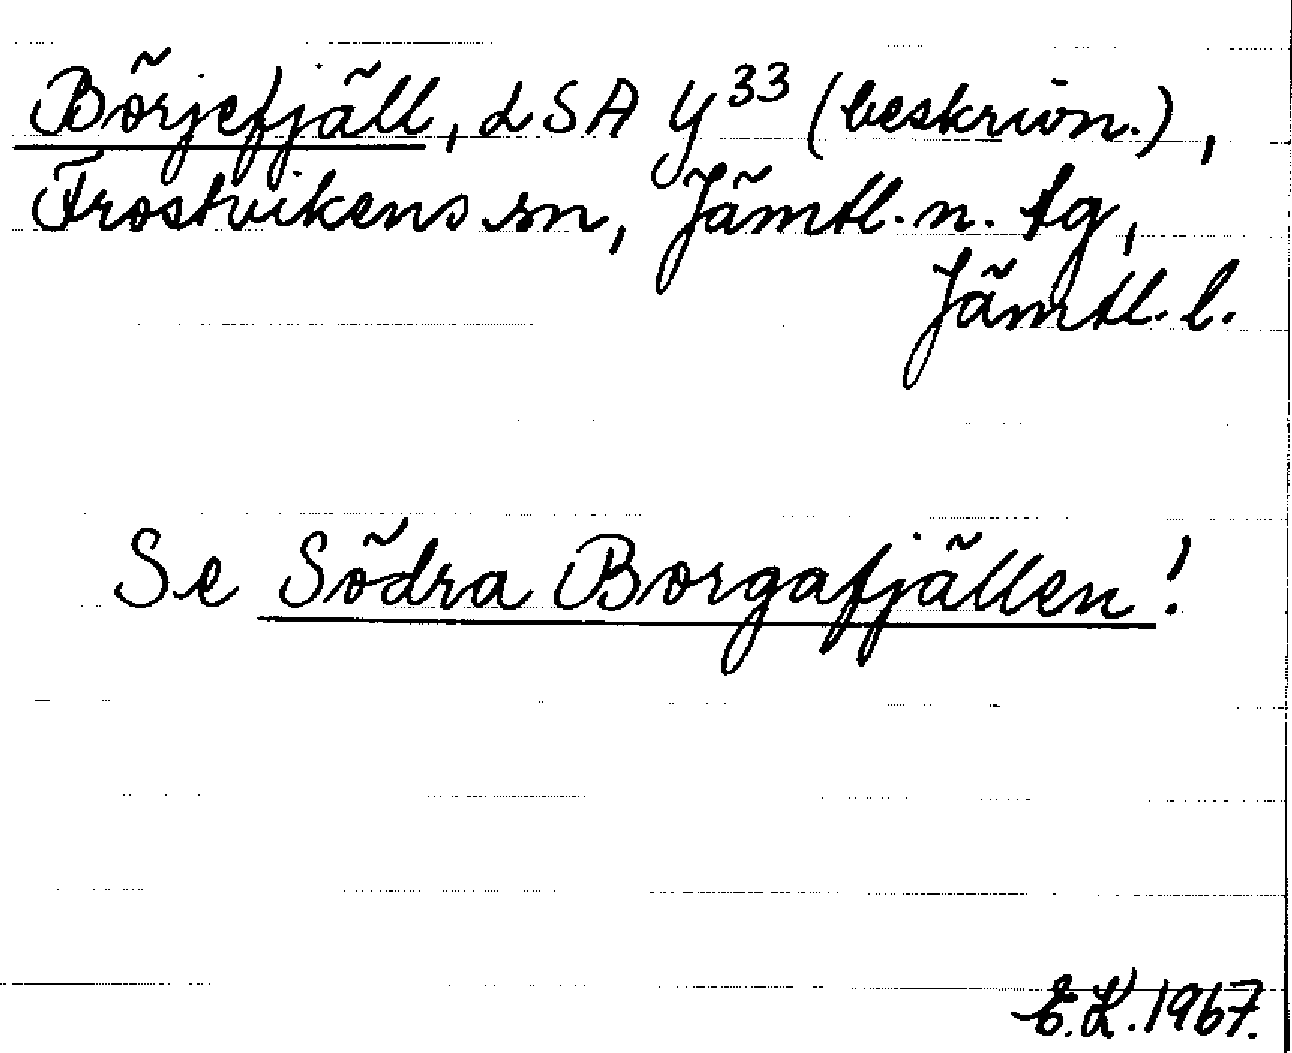 Börjefjäll, LSA Y³³ (beskrivn.),
Frostvikens sn, Jämtl. n. fg,
Jämtl. l.
Se Södra Borgafjällen!
E.K. 1967.